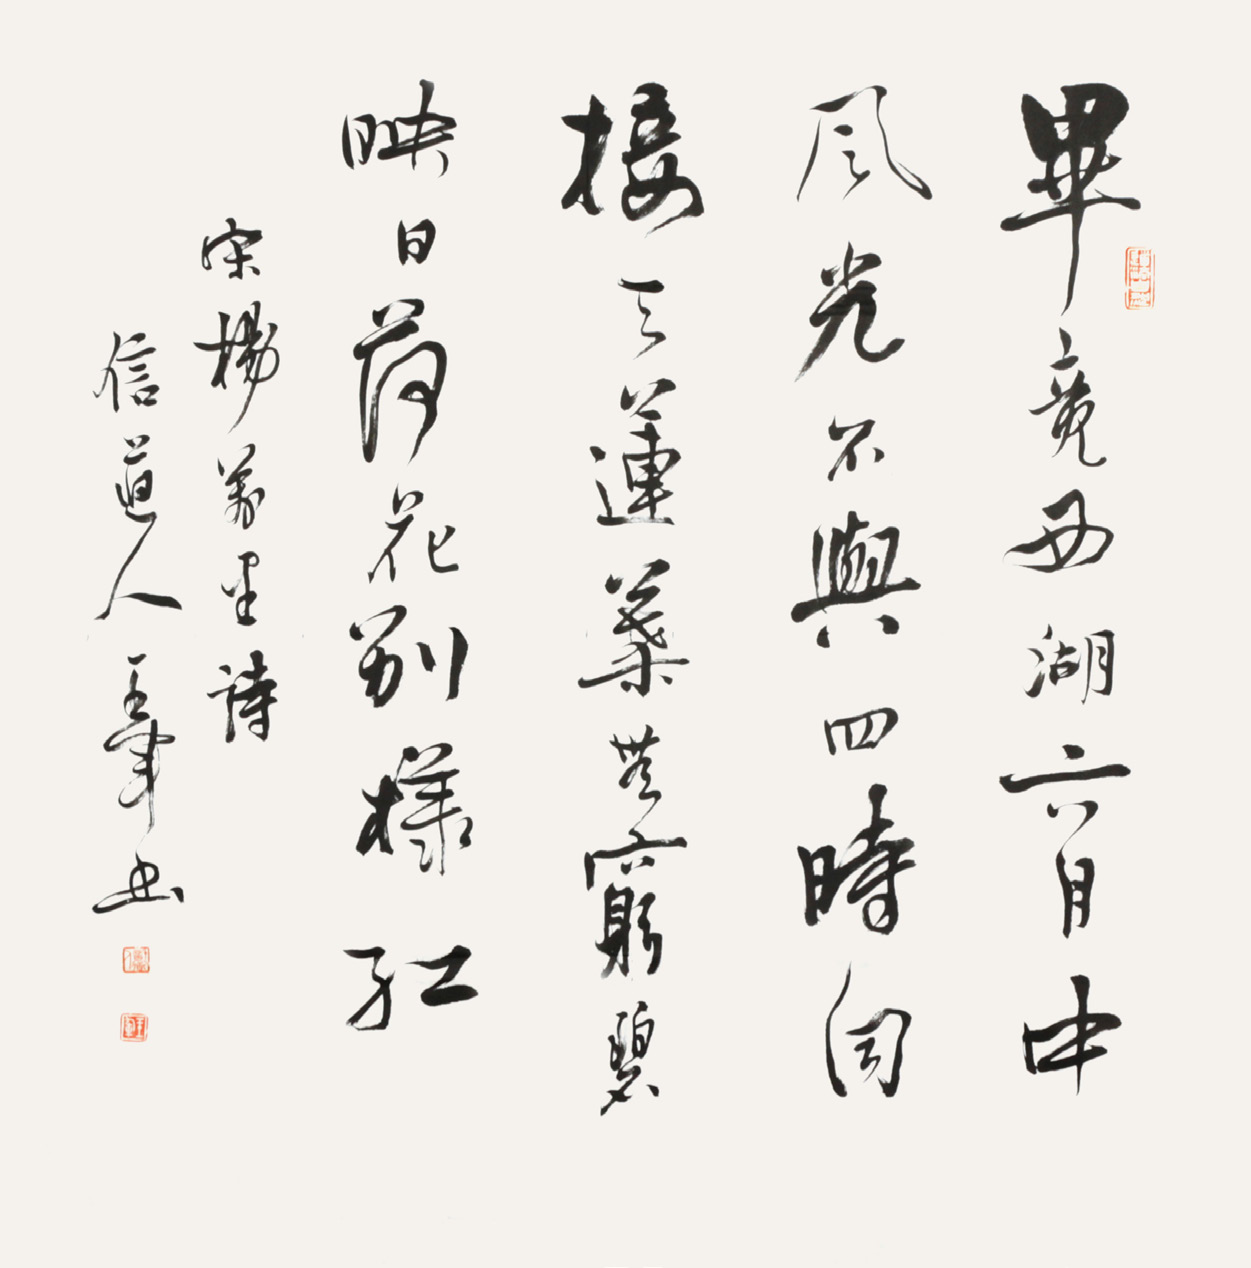 畢竟西湖六月中
風光不與四時同
接天蓮葉無窮碧
映日荷花別樣紅
宋楊萬里詩
信道人王軍書